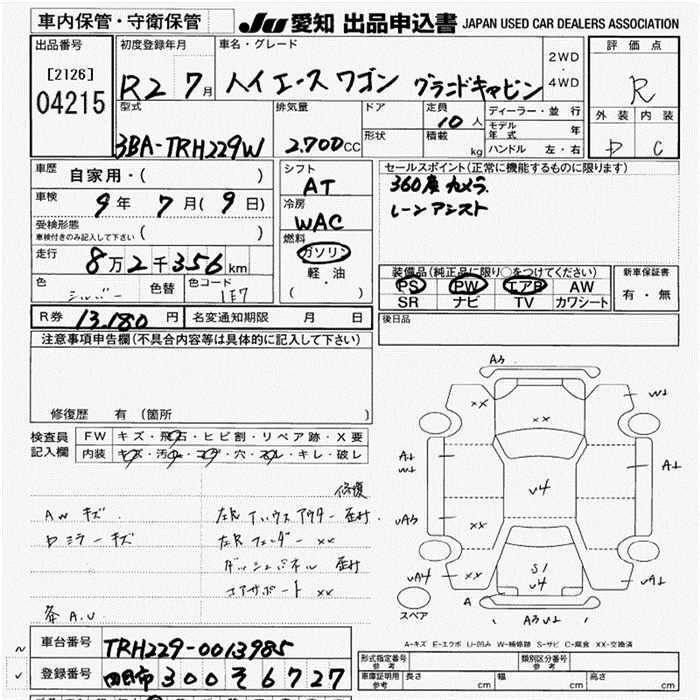 車内保管・守衛保管
JU 愛知 出品申込書 JAPAN USED CAR DEALERS ASSOCIATION
出品番号
[2126]
04215
初度登録年月
R2 7月
車名・グレード
ハイエース ワゴン グランドキャビン
2WD
・
4WD
評価点
R
外装 内装
D C
型式
3BA-TRH229W
排気量
2,700CC
ドア
形状
定員
10人
積載
kg
ディーラー・並行
モデル年式 年
ハンドル 左・右
車歴
自家用・( )
車検
9年 7月(9日)
受検形態
車検付きのみ記入して下さい ( )
走行
8万2千356km
色
シルバー
色替
色コード
1E7
シフト
AT
冷房
WAC
燃料
ガソリン
・
軽油
( )
セールスポイント(正常に機能するものに限ります)
360度カメラ
レーンアシスト
装備品(純正品に限り○をつけてください)
PS PW エアB AW
SR ナビ TV カワシート
新車保証書
有・無
R券 13,180円
名変通知期限 月 日
後日品
注意事項申告欄(不具合内容等は具体的に記入して下さい)
修復歴 有(箇所 )
検査員
記入欄
FW キズ・飛石・ヒビ割・リペア跡・X要
内装 キズ・汚れ・コゲ・穴・スレ・キレ・破レ
修復
AWキズ
Dミラーキズ
A.U
XX
ダッシュパネル
エアサポート XX
A3
XX
XX
W2
A1
W1
A1
V4
UA3
XX
UA4
XX
S1
V4
UA1
A
A3 U1
スペア
A-キズ E-エクボ U-凹み W-補修跡 S-サビ C-腐食 XX-交換済
車台番号 TRH229-0013985
登録番号 四日市 300 そ 6727
形式指定番号
参考
類別区分番号
参考
車庫証明用
参考
長さ cm
幅 cm
高さ cm